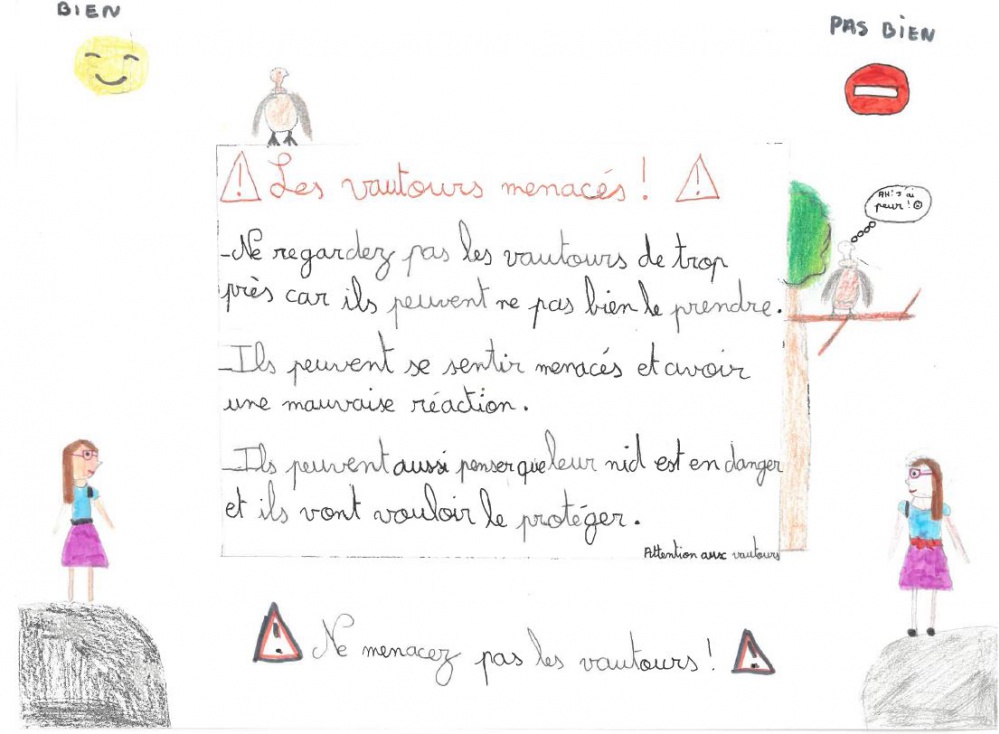 BIEN
PAS BIEN
Les vautours menacés !
AH! J'ai
peur !
-Ne regardez pas les vautours de trop
près car ils peuvent ne pas bien le prendre.
-Ils peuvent se sentir menacés et avoir
une mauvaise réaction.
-Ils peuvent aussi penser que leur nid est en danger
et ils vont vouloir le protéger.
Attention aux vautours
Ne menacez pas les vautours !